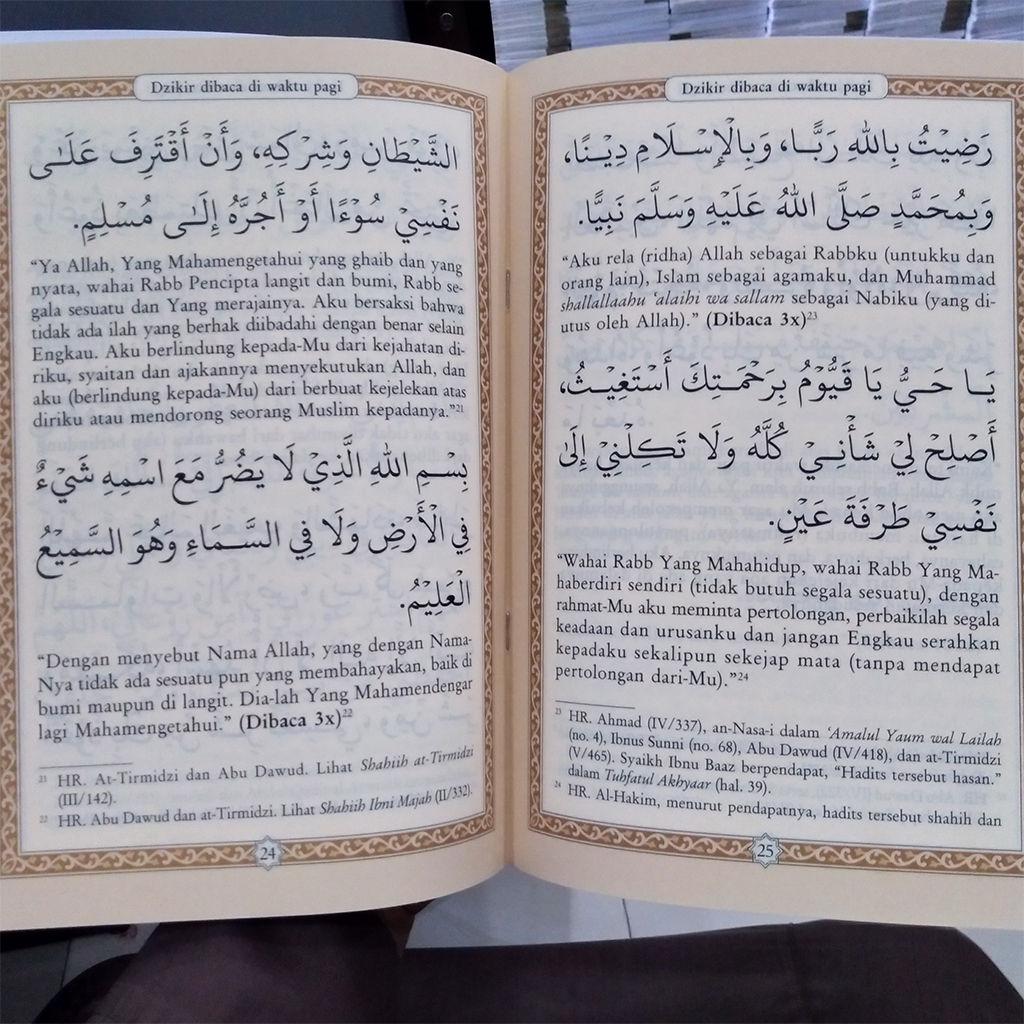 Dzikir dibaca di waktu pagi
الشَّيْطَانِ وَشِرْكِهِ، وَأَنْ أَقْتَرِفَ عَلَـى
نَفْسِيْ سُوْءًا أَوْ أَجُرَّهُ إِلَـى مُسْلِمٍ.
“Ya Allah, Yang Mahamengetahui yang ghaib dan yang
nyata, wahai Rabb Pencipta langit dan bumi, Rabb se-
gala sesuatu dan Yang merajainya. Aku bersaksi bahwa
tidak ada ilah yang berhak diibadahi dengan benar selain
Engkau. Aku berlindung kepada-Mu dari kejahatan di-
riku, syaitan dan ajakannya menyekutukan Allah, dan
aku (berlindung kepada-Mu) dari berbuat kejelekan atas
diriku atau mendorong seorang Muslim kepadanya.”21
بِسْمِ اللهِ الَّذِيْ لَا يَضُرُّ مَعَ اسْمِهِ شَيْءٌ
فِي الْأَرْضِ وَلَا فِي السَّمَاءِ وَهُوَ السَّمِيْعُ
الْعَلِيْمُ.
“Dengan menyebut Nama Allah, yang dengan Nama-
Nya tidak ada sesuatu pun yang membahayakan, baik di
bumi maupun di langit. Dia-lah Yang Mahamendengar
lagi Mahamengetahui.” (Dibaca 3x)22
21 HR. At-Tirmidzi dan Abu Dawud. Lihat Shahiih at-Tirmidzi
(III/142).
22 HR. Abu Dawud dan at-Tirmidzi. Lihat Shahiih Ibni Majah (II/332).
24
Dzikir dibaca di waktu pagi
رَضِيْتُ بِاللهِ رَبًّـا، وَبِالْإِسْـلَامِ دِيْـنًا،
وَبِمُحَمَّدٍ صَلَّى اللهُ عَلَيْهِ وَسَلَّمَ نَبِيًّا.
“Aku rela (ridha) Allah sebagai Rabbku (untukku dan
orang lain), Islam sebagai agamaku, dan Muhammad
shallallaahu ‘alaihi wa sallam sebagai Nabiku (yang di-
utus oleh Allah).” (Dibaca 3x)23
يَـا حَـيُّ يَا قَيُّوْمُ بِرَحْمَـتِكَ أَسْتَغِيْـثُ،
أَصْلِحْ لِيْ شَأْنِـيْ كُلَّهُ وَلَا تَكِلْنِيْ إِلَى
نَفْسِيْ طَرْفَةَ عَيْنٍ.
“Wahai Rabb Yang Mahahidup, wahai Rabb Yang Ma-
haberdiri sendiri (tidak butuh segala sesuatu), dengan
rahmat-Mu aku meminta pertolongan, perbaikilah segala
keadaan dan urusanku dan jangan Engkau serahkan
kepadaku sekalipun sekejap mata (tanpa mendapat
pertolongan dari-Mu).”24
23 HR. Ahmad (IV/337), an-Nasa-i dalam ‘Amalul Yaum wal Lailah
(no. 4), Ibnus Sunni (no. 68), Abu Dawud (IV/418), dan at-Tirmidzi
(V/465). Syaikh Ibnu Baaz berpendapat, “Hadits tersebut hasan.”
dalam Tuhfatul Akhyaar (hal. 39).
24 HR. Al-Hakim, menurut pendapatnya, hadits tersebut shahih dan
25